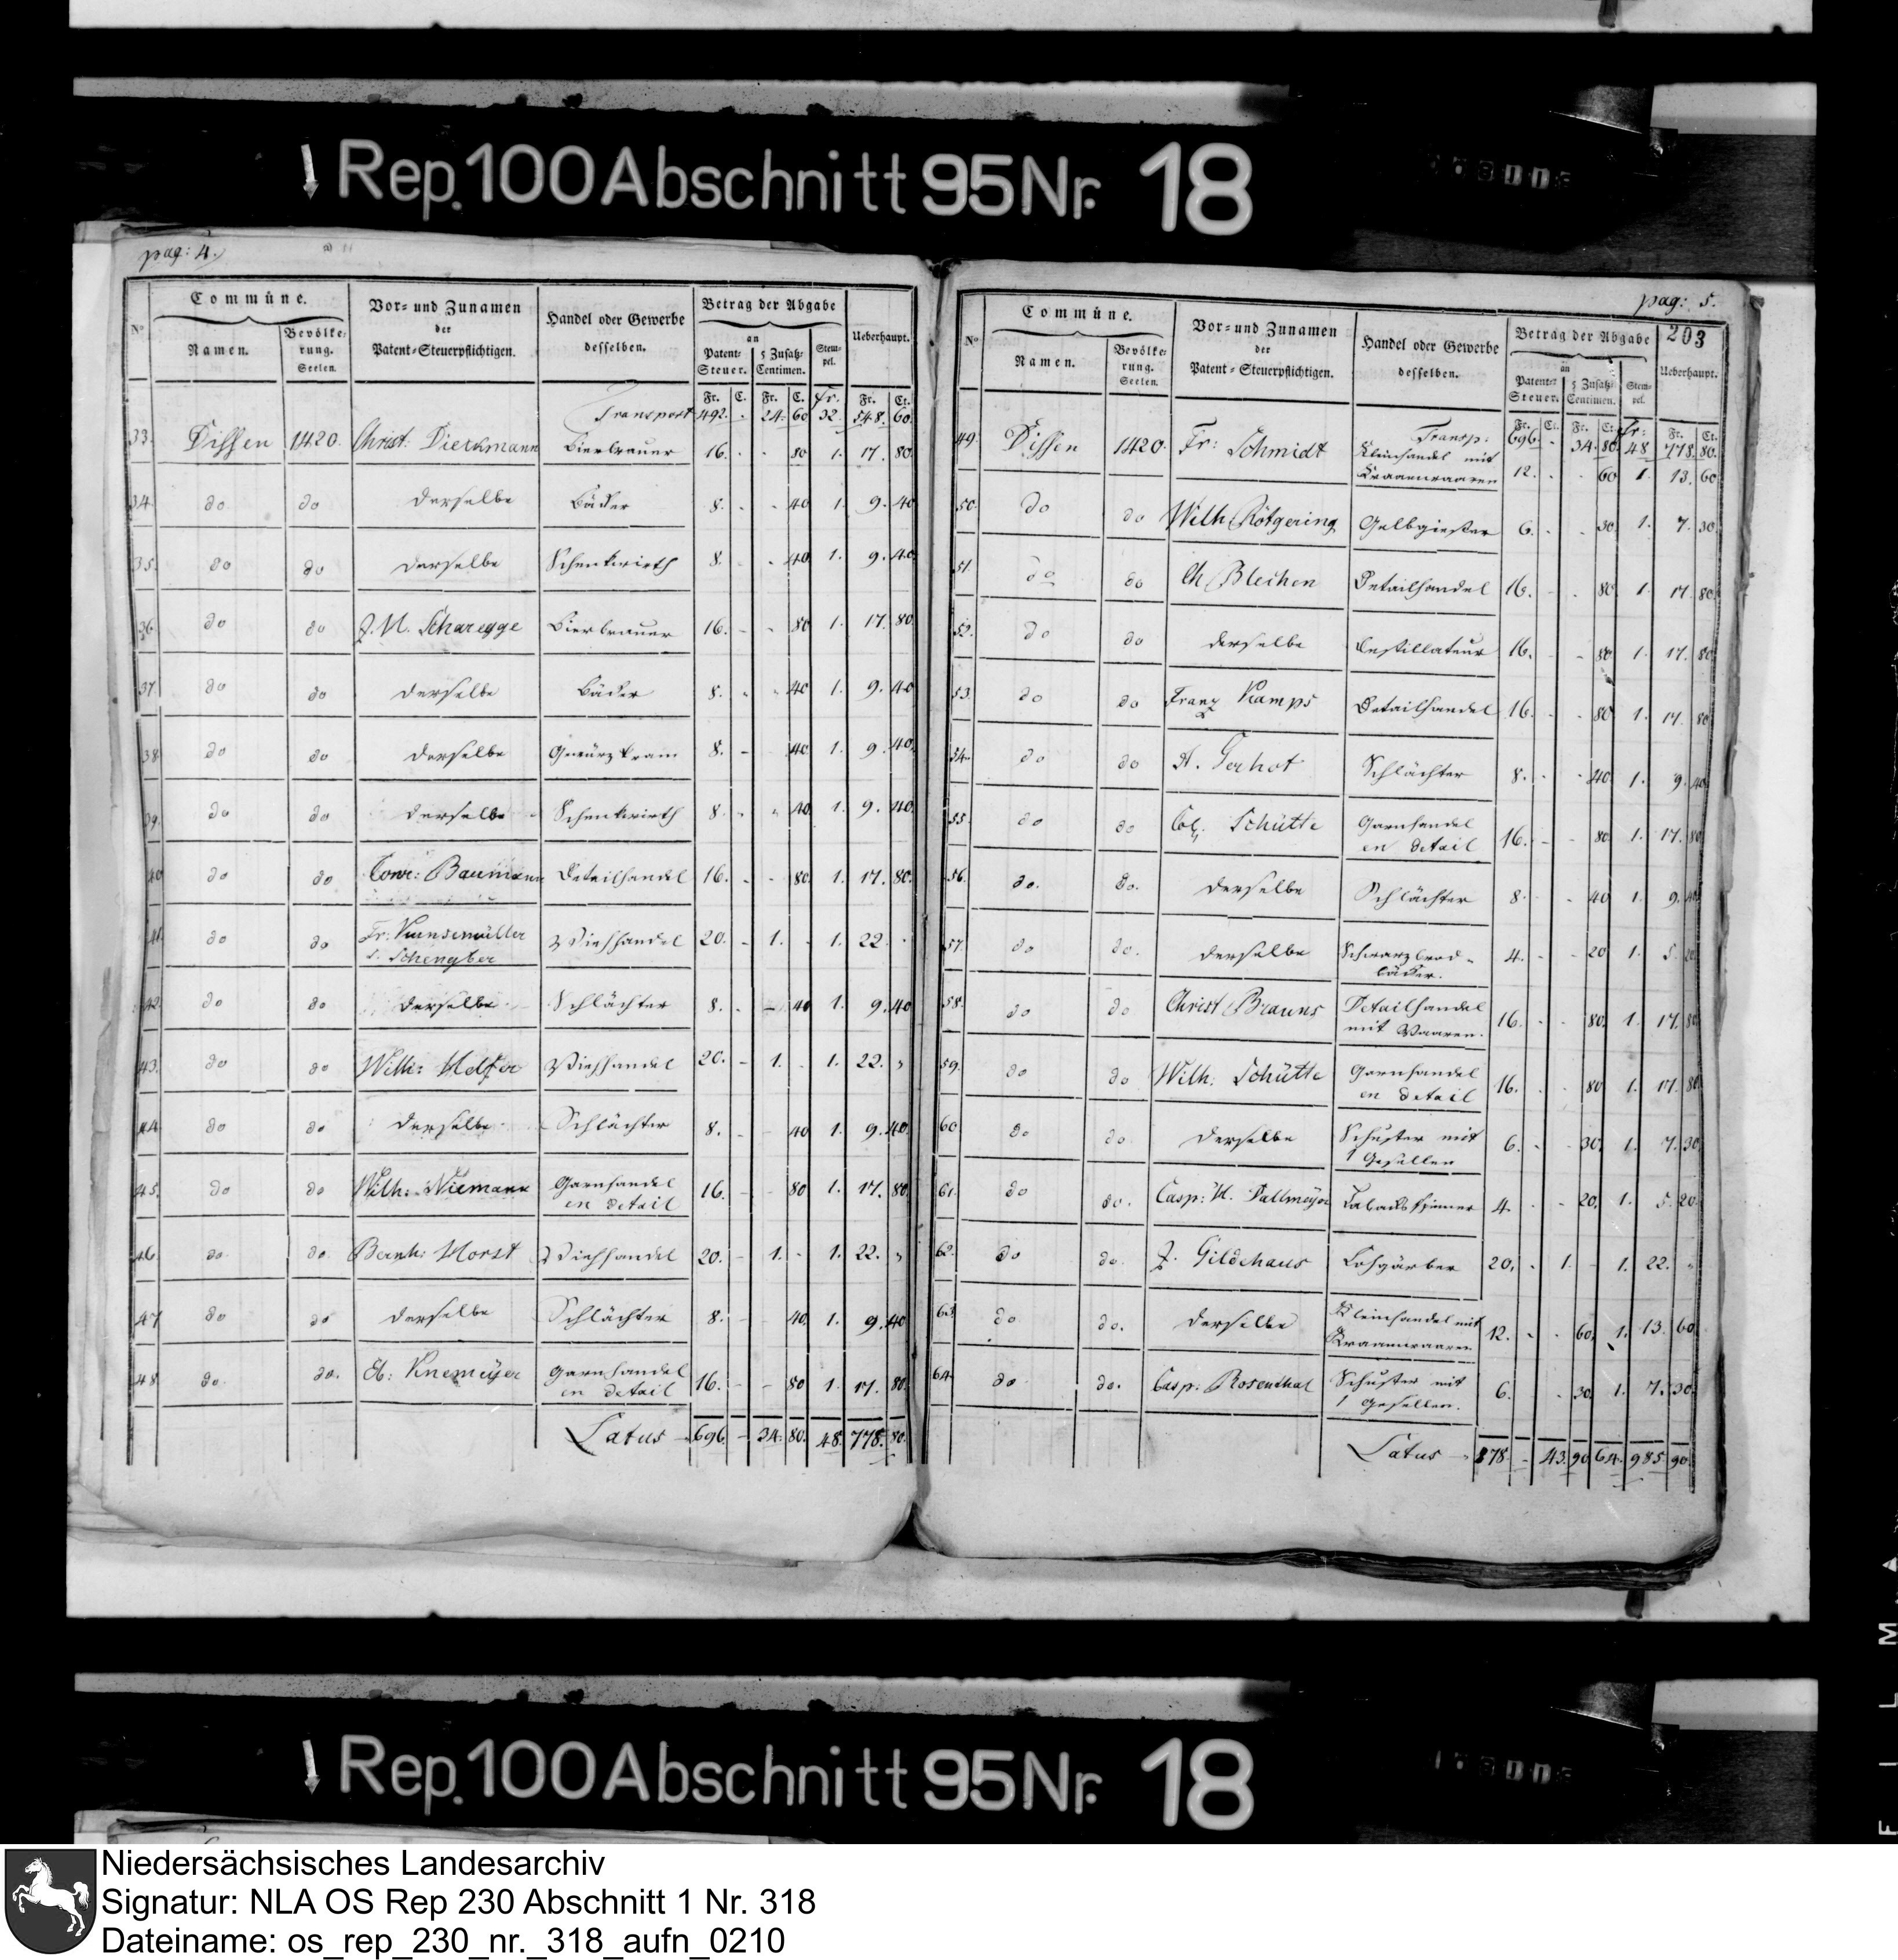 Rep. 100 Abschnitt 95 Nr. 18
pag: 4.
No
Commüne.
Namen.
Bevölke-
rung.
Seelen.
Vor- und Zunamen
der
Patent-Steuerpflichtigen.
Handel oder Gewerbe
desselben.
Betrag der Abgabe
an
Patent-
Steuer.
5 Zusatz-
Centimen.
Stem-
pel.
Ueberhaupt.
Fr. C. Fr. C. Fr. Fr. Ct.
Transport 492. - 24. 60 32. 548. 60.
33. Dissen 1420. Christ: Dieckmann Bierbrauer 16. - - 80 1. 17. 80.
34. do do derselbe Bäcker 8. - - 40 1. 9. 40
35. do do derselbe Schenkwirth 8. - - 40 1. 9. 40
36. do do J. H. Scharegge Bierbrauer 16. - - 80 1. 17. 80
37 do do derselbe Bäcker 8. - - 40 1. 9. 40
38. do do derselbe Gewürzkram 8. - - 40 1. 9. 40.
39. do do derselbe Schenkwirth 8. - - 40 1. 9. 40.
40 do do Conr: Baumann Detailhandel 16. - - 80. 1. 17. 80.
41. do do Fr: Kunsemüller Viehhandel 20. - 1. - 1. 22. -
42. do do derselbe Schlächter 8. - - 40 1. 9. 40
43. do do Wilh: Helfer Viehhandel 20. - 1. - 1. 22. -
44 do do derselbe Schlächter 8. - - 40 1. 9. 40.
45. do do Wilh: Niemann Garnhandel
en detail 16. - - 80 1. 17. 80.
46. do do Bernh: Horst Viehhandel 20. - 1. - 1. 22. -
47 do do derselbe Schlächter 8. - - 40. 1. 9. 40
48 do. do. Knemeyer Garnhandel
en detail 16. - - 80 1. 17. 80.
Latus 696. - 34. 80. 48. 778. 80.
pag: 5.
203
No
Commüne.
Namen.
Bevölke-
rung.
Seelen.
Vor- und Zunamen
der
Patent-Steuerpflichtigen.
Handel oder Gewerbe
desselben.
Betrag der Abgabe
an
Patent-
Steuer.
5 Zusatz-
Centimen.
Stem-
pel.
Ueberhaupt.
Fr. Ct. Fr. Ct. Fr: Fr. Ct.
Transp: 696. - 34. 80. 48 778. 80.
49. Dissen 1420. Fr: Schmidt Kleinhandel mit
Kraamwaaren 12. - - 60 1. 13. 60
50. do do Wilh Rötgering Gelbgiesser 6. - - 30 1. 7. 30.
51. do do Ch Bleihen Detailhandel 16. - - 80. 1. 17. 80.
52. do do derselbe Destillateur 16. - - 80 1. 17. 80
53. do do Franz Kamps Detailhandel 16. - - 80 1. 17. 80
54. do do Schlächter 8. - - 40 1. 9. 40
55. do do Schütte Garnhandel
en detail 16. - - 80. 1. 17. 80
56. do. do. derselbe Schlächter 8. - - 40 1. 9. 40
57. do do. derselbe Schwarzbrod-
bäcker. 4. - - 20 1. 5. 20
58. do do Christ Brauns Detailhandel
mit Waaren. 16. - - 80. 1. 17. 80
59. do do Wilh. Schütte Garnhandel
en detail 16. - - 80 1. 17. 80
60 do do. derselbe Schuster mit
1 Gesellen 6. - - 30. 1. 7. 30
61. do do. Casp: H. Dallmeyer Tabacksspinner 4. - - 20. 1. 5. 20.
62. do do. J. Gildehaus Lohgärber 20. - 1. - 1. 22. -
63. do do. derselbe Kleinhandel mit
Kraamwaaren 12. - - 60. 1. 13. 60
64 do do. Casp: Rosenthal Schuster mit
1 Gesellen. 6. - - 30. 1. 7. 30.
Latus 878. - 43. 90 64. 985. 90.
Rep. 100 Abschnitt 95 Nr. 18
Niedersächsisches Landesarchiv
Signatur: NLA OS Rep 230 Abschnitt 1 Nr. 318
Dateiname: os_rep_230_nr._318_aufn_0210